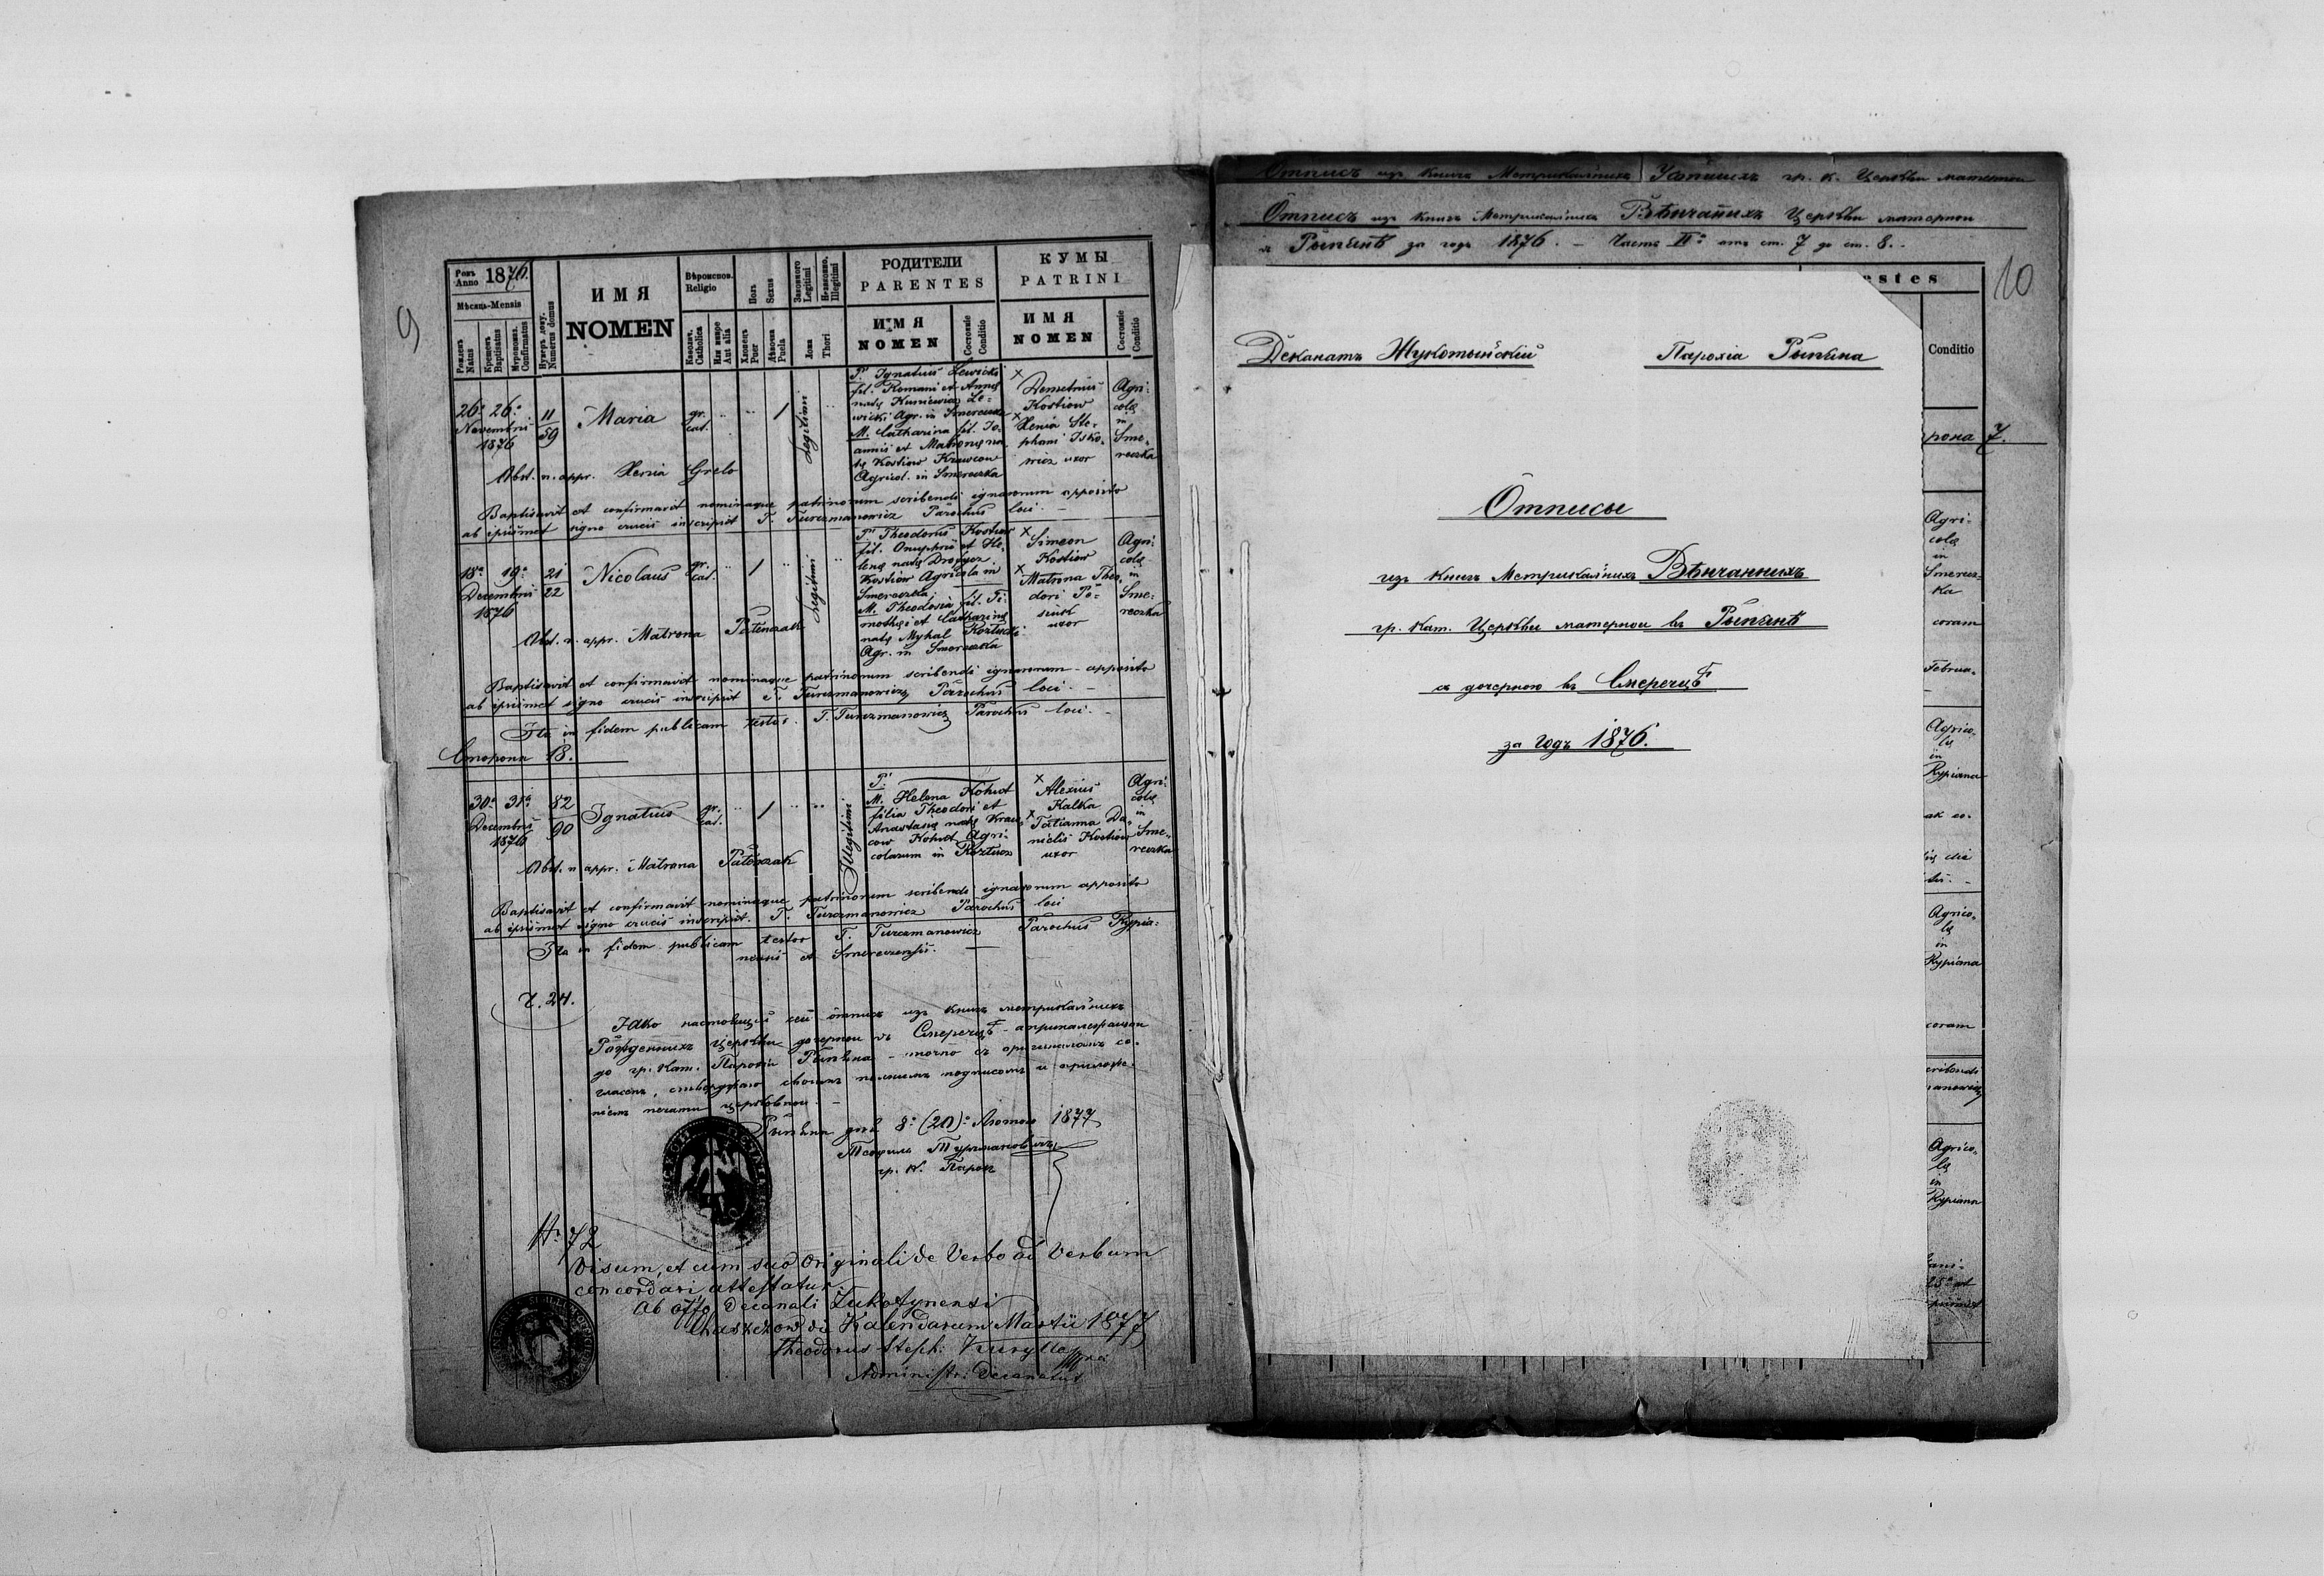 9
Рокъ Anno 1876.
Мѣсяць-Mensis
Рожденъ Natus
Крещенъ Baptisatus
Муропомаз. Confirmatus
Нумеръ дому. Numerus domus
ИМЯ
NOMEN
Вѣроисповѣд. Religio
Католич. Catholica
Или инаре Aut alia
Полъ Sexus
Хлопецъ Puer
Дѣвочка Puella
Законного Legitimi
Незаконно. Illegitimi
Ложа Thori
РОДИТЕЛИ
PARENTES
ИМЯ
NOMEN
Состояніе Conditio
КУМЫ
PATRINI
ИМЯ
NOMEN
Состояніе Conditio
26ª 26ª
Novembris
1876
11
59
Maria
gr. cat.
1
Legitimi
P. Ignatius Lewicki
fil. Romani et Annę
natę Kuniewicz Le-
wicki Agr. in Smereczka
M. Catharina fil. Jo-
annis et Matronę na-
tę Kostiow Krawcow
Agricol. in Smereczka
× Demetrius
Kostiow
× Xenia Ste-
phani Isko-
wicz uxor
Agri-
colę
in
Sme-
reczka
Obst. n. appr. Xenia Grelo
Baptisavit et confirmavit nominaque patrinorum scribendi ignarorum apposito
ab ipsismet signo crucis inscripsit T. Turczmanowicz Parochus loci. –
18ª 19ª
Decembris
1876
21
22
Nicolaus
gr. cat.
1
Legitimi
P. Theodorus Kostiow
fil. Onuphrii et He-
lenę natę
Kostiow Agricola in
Smereczka
M. Theodosia fil. Ti-
mothęi et Catharinę
natę Mychal
Agr. in Smereczka
× Simeon
Kostiow
× Matrona Theo-
dori
uxor
Agri-
colę
in
Sme-
reczka
Obst. n. appr. Matrona Patenczak
Baptisavit et confirmavit nominaque patrinorum scribendi ignarorum apposito
ab ipsismet signo crucis inscripsit T. Turczmanowicz Parochus loci. –
Ita in fidem publicam testor. T. Turczmanowicz Parochus loci. –
Сторона 18.
30ª 31ª
Decembris
1876
82
90
Ignatius
gr. cat.
1
Illegitimi
P.
M. Helena Kohut
filia Theodori et
Anastasię natę Kraw-
cow Kohut Agri-
colarum in
× Alexius
Kalka
× Tatianna Da-
nielis Kostiow
uxor
Agri-
colę
in
Sme-
reczka
Obst. n appr. Matrona Patenczak
Baptisavit et confirmavit nominaque patrinorum scribendi ignarorum apposito
ab ipsismet signo crucis inscripsit. T. Turczmanowicz Parochus loci
Ita in fidem publicam testor T. Turczmanowicz Parochus Rypia-
nensis et Smereczensis. –
Ч. 24.
Яко настоящій сей отписъ изъ книгъ метрикальныхъ
Рожденныхъ церкви дочерной въ Смеречцѣ
до гр. кат. Парохіи Рыпяна – точно съ оригиналомъ со-
гласенъ, ствердждаю своимъ подписомъ и приложе-
ніемъ печати церковной. –
Рыпяна дня 8º (20)º Лютого 1877
Теофилъ Турчмановичъ
гр. к. Парох
Nº 72
Visum, et cum suo Originali de Verbo ad Verbum
concordari attestatur
Ab offo Decanali Żukotynensi
die Kalendarum Martii 1877
Theodorus Steph: Kuryłło
Administr. Decanatus
Отписъ изъ книгъ Метрикальныхъ Усопшихъ гр. к. Церкви матерной
Отписъ изъ книгъ Метрикальныхъ Вѣнчаныхъ Церкви матерной
въ Рыпянѣ за годъ 1876. – Часть II. отъ ст. 7 до ст. 8. –
10
estes
Conditio
рона 7.
Деканатъ Жукотыньскій
Парохіа Рыпяна
Отписы
изъ книгъ Метрикальныхъ Вѣнчанныхъ
гр. кат. Церкви матерной въ Рыпянѣ
съ дочерною въ Смеречцѣ
за годъ 1876.
Agri-
colę
in
Smerecz-
ka
coram
Februa-
Agrico-
lę
in
Rypiana
ak co-
Agrico-
lę
in
Rypiana
coram
cribendi
anowicz
Agrico-
lę
in
Rypiana